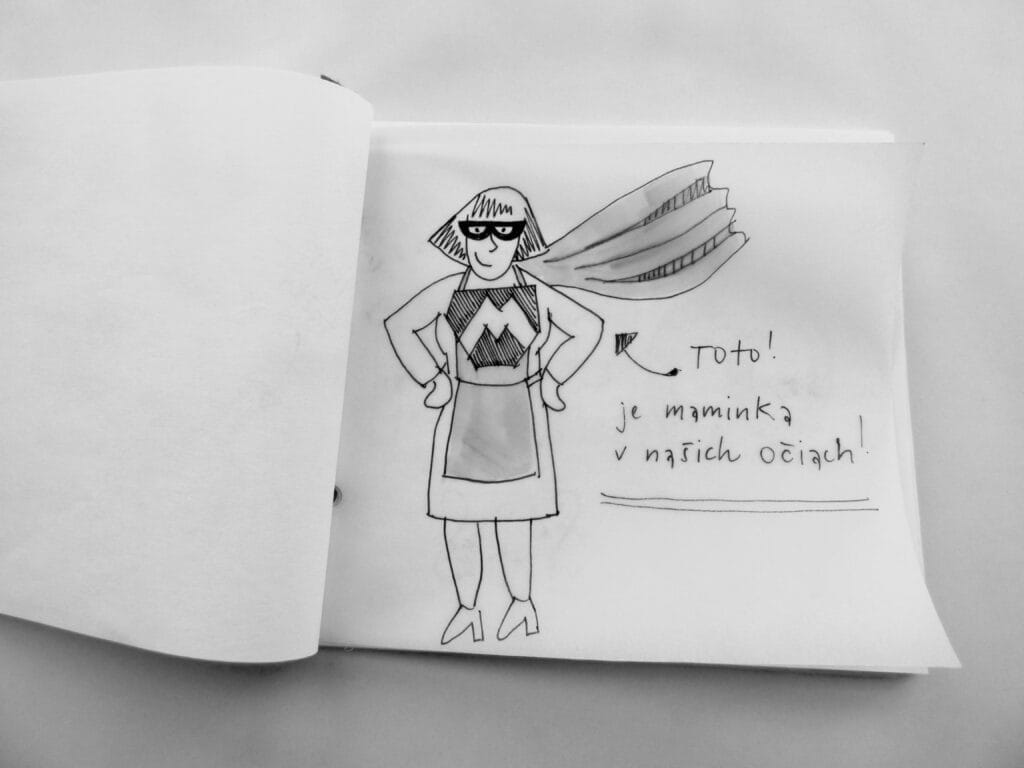 M
TOTO!
je maminka
v našich očiach!